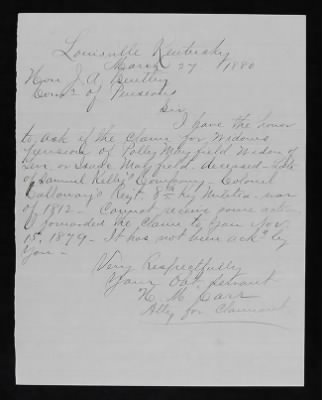 Louisville Kentucky
March 27 1880
Hon J. A. Bentley
Com2 of Pensions
Sir
I have the honor
to ask if the Claim for Widows
Pension of Polley Mayfield Widow of
or Isaac Mayfield deceased - late
of Samuel Kelly's Company - Colonel
Calloway's Regt. 8th Ky Militia - war
of 1812 - Cannot receive some action
I forwarded the Claim to you Nov
15, 1879 - It has not been ack'd by
you -
Very Respectfully
Your Obt. servant
H. M. Carr
Atty for Claimant